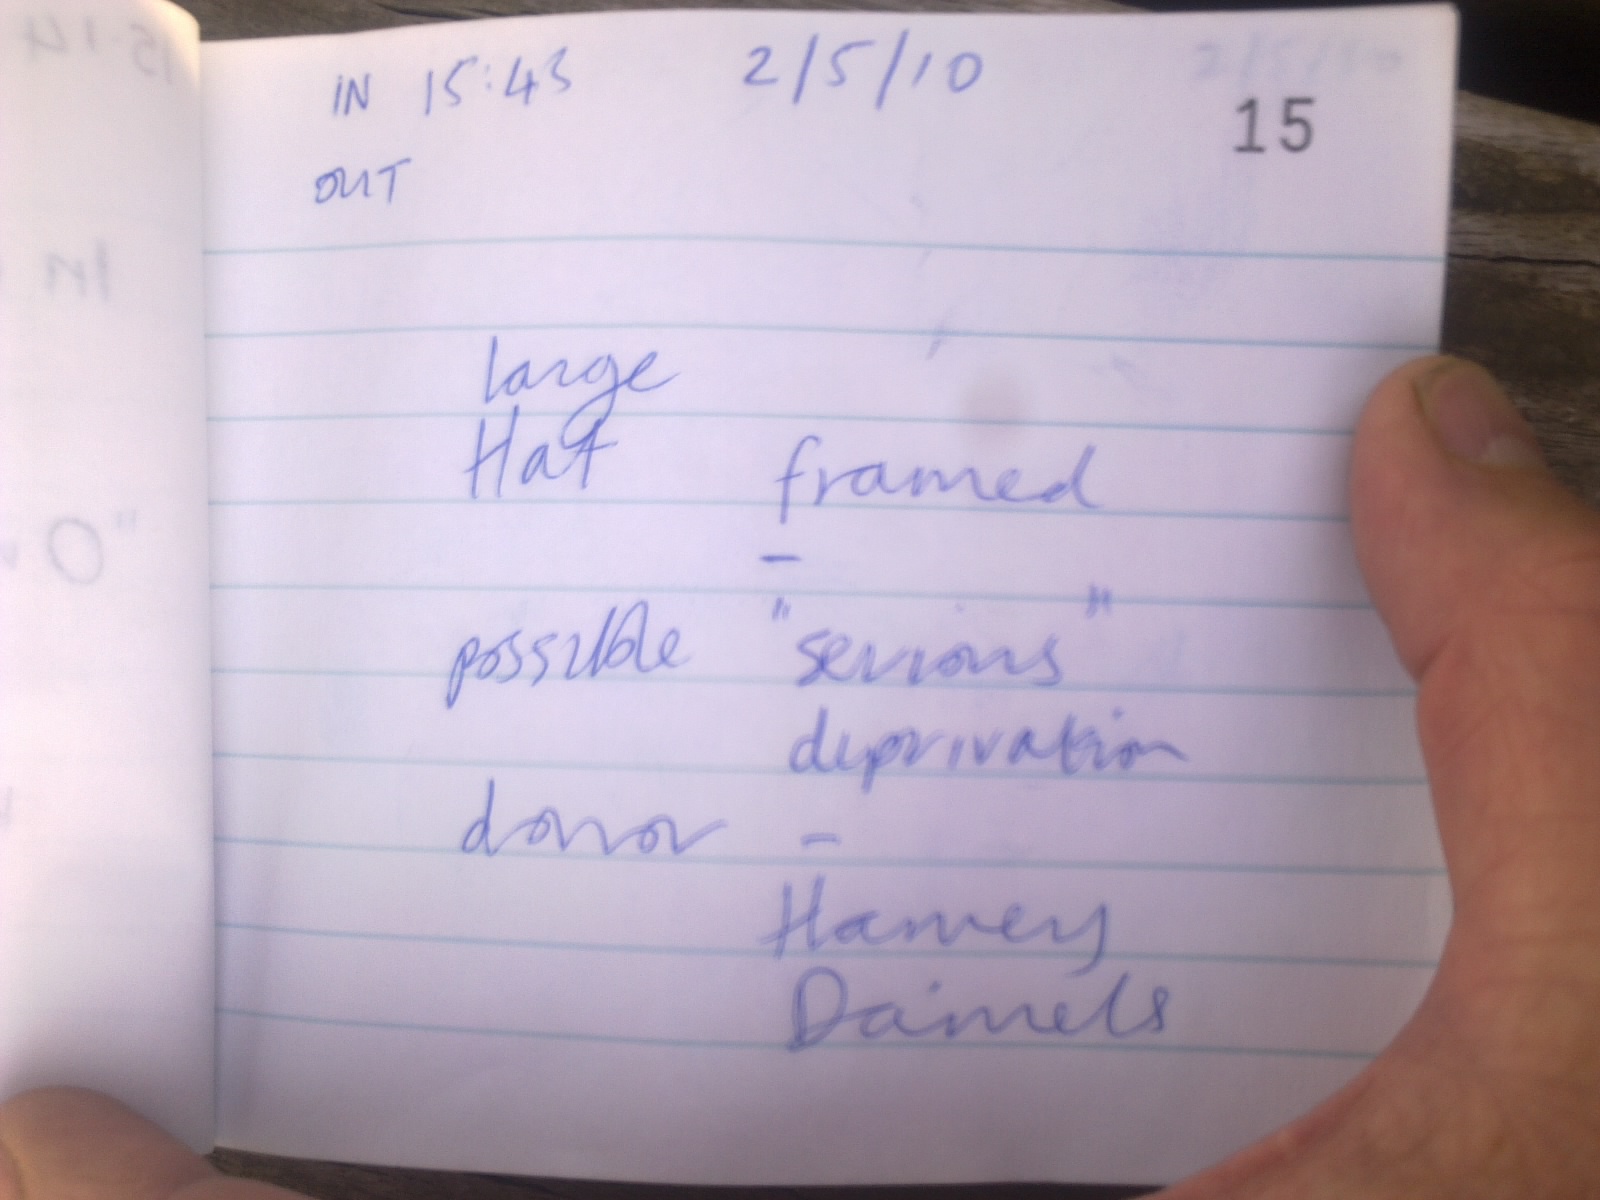 IN 15:43 2/5/10
15
OUT
large
Hat framed
-
possible "serious"
deprivation
donor -
Harvey
Daniels